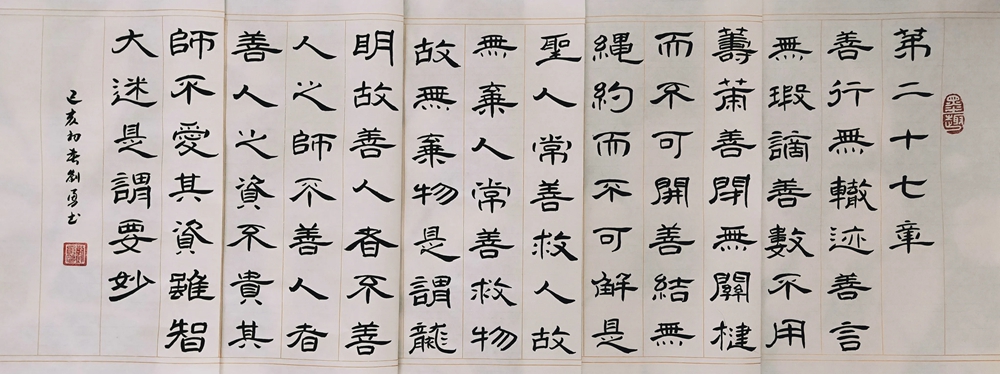 墨趣
第二十七章
善行無轍迹善言
無瑕謫善數不用
籌策善閉無關楗
而不可開善結無
縄約而不可解是
聖人常善救人故
無棄人常善救物
故無棄物是謂龍
明故善人者不善
人之師不善人者
善人之資不貴其
師不愛其資雖智
大迷是謂要妙
己亥初春劉勇书